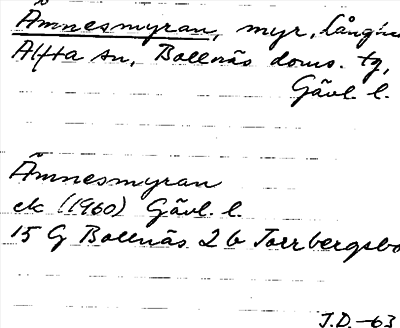 Ämnesmyran, myr, Lång
Alfta sn, Bollnäs doms. tg,
Gävl. l.
Ämnesmyran
ek (1960) Gävl. l.
15 G Bollnäs 2 b Torrbergsbo
J.D. -63